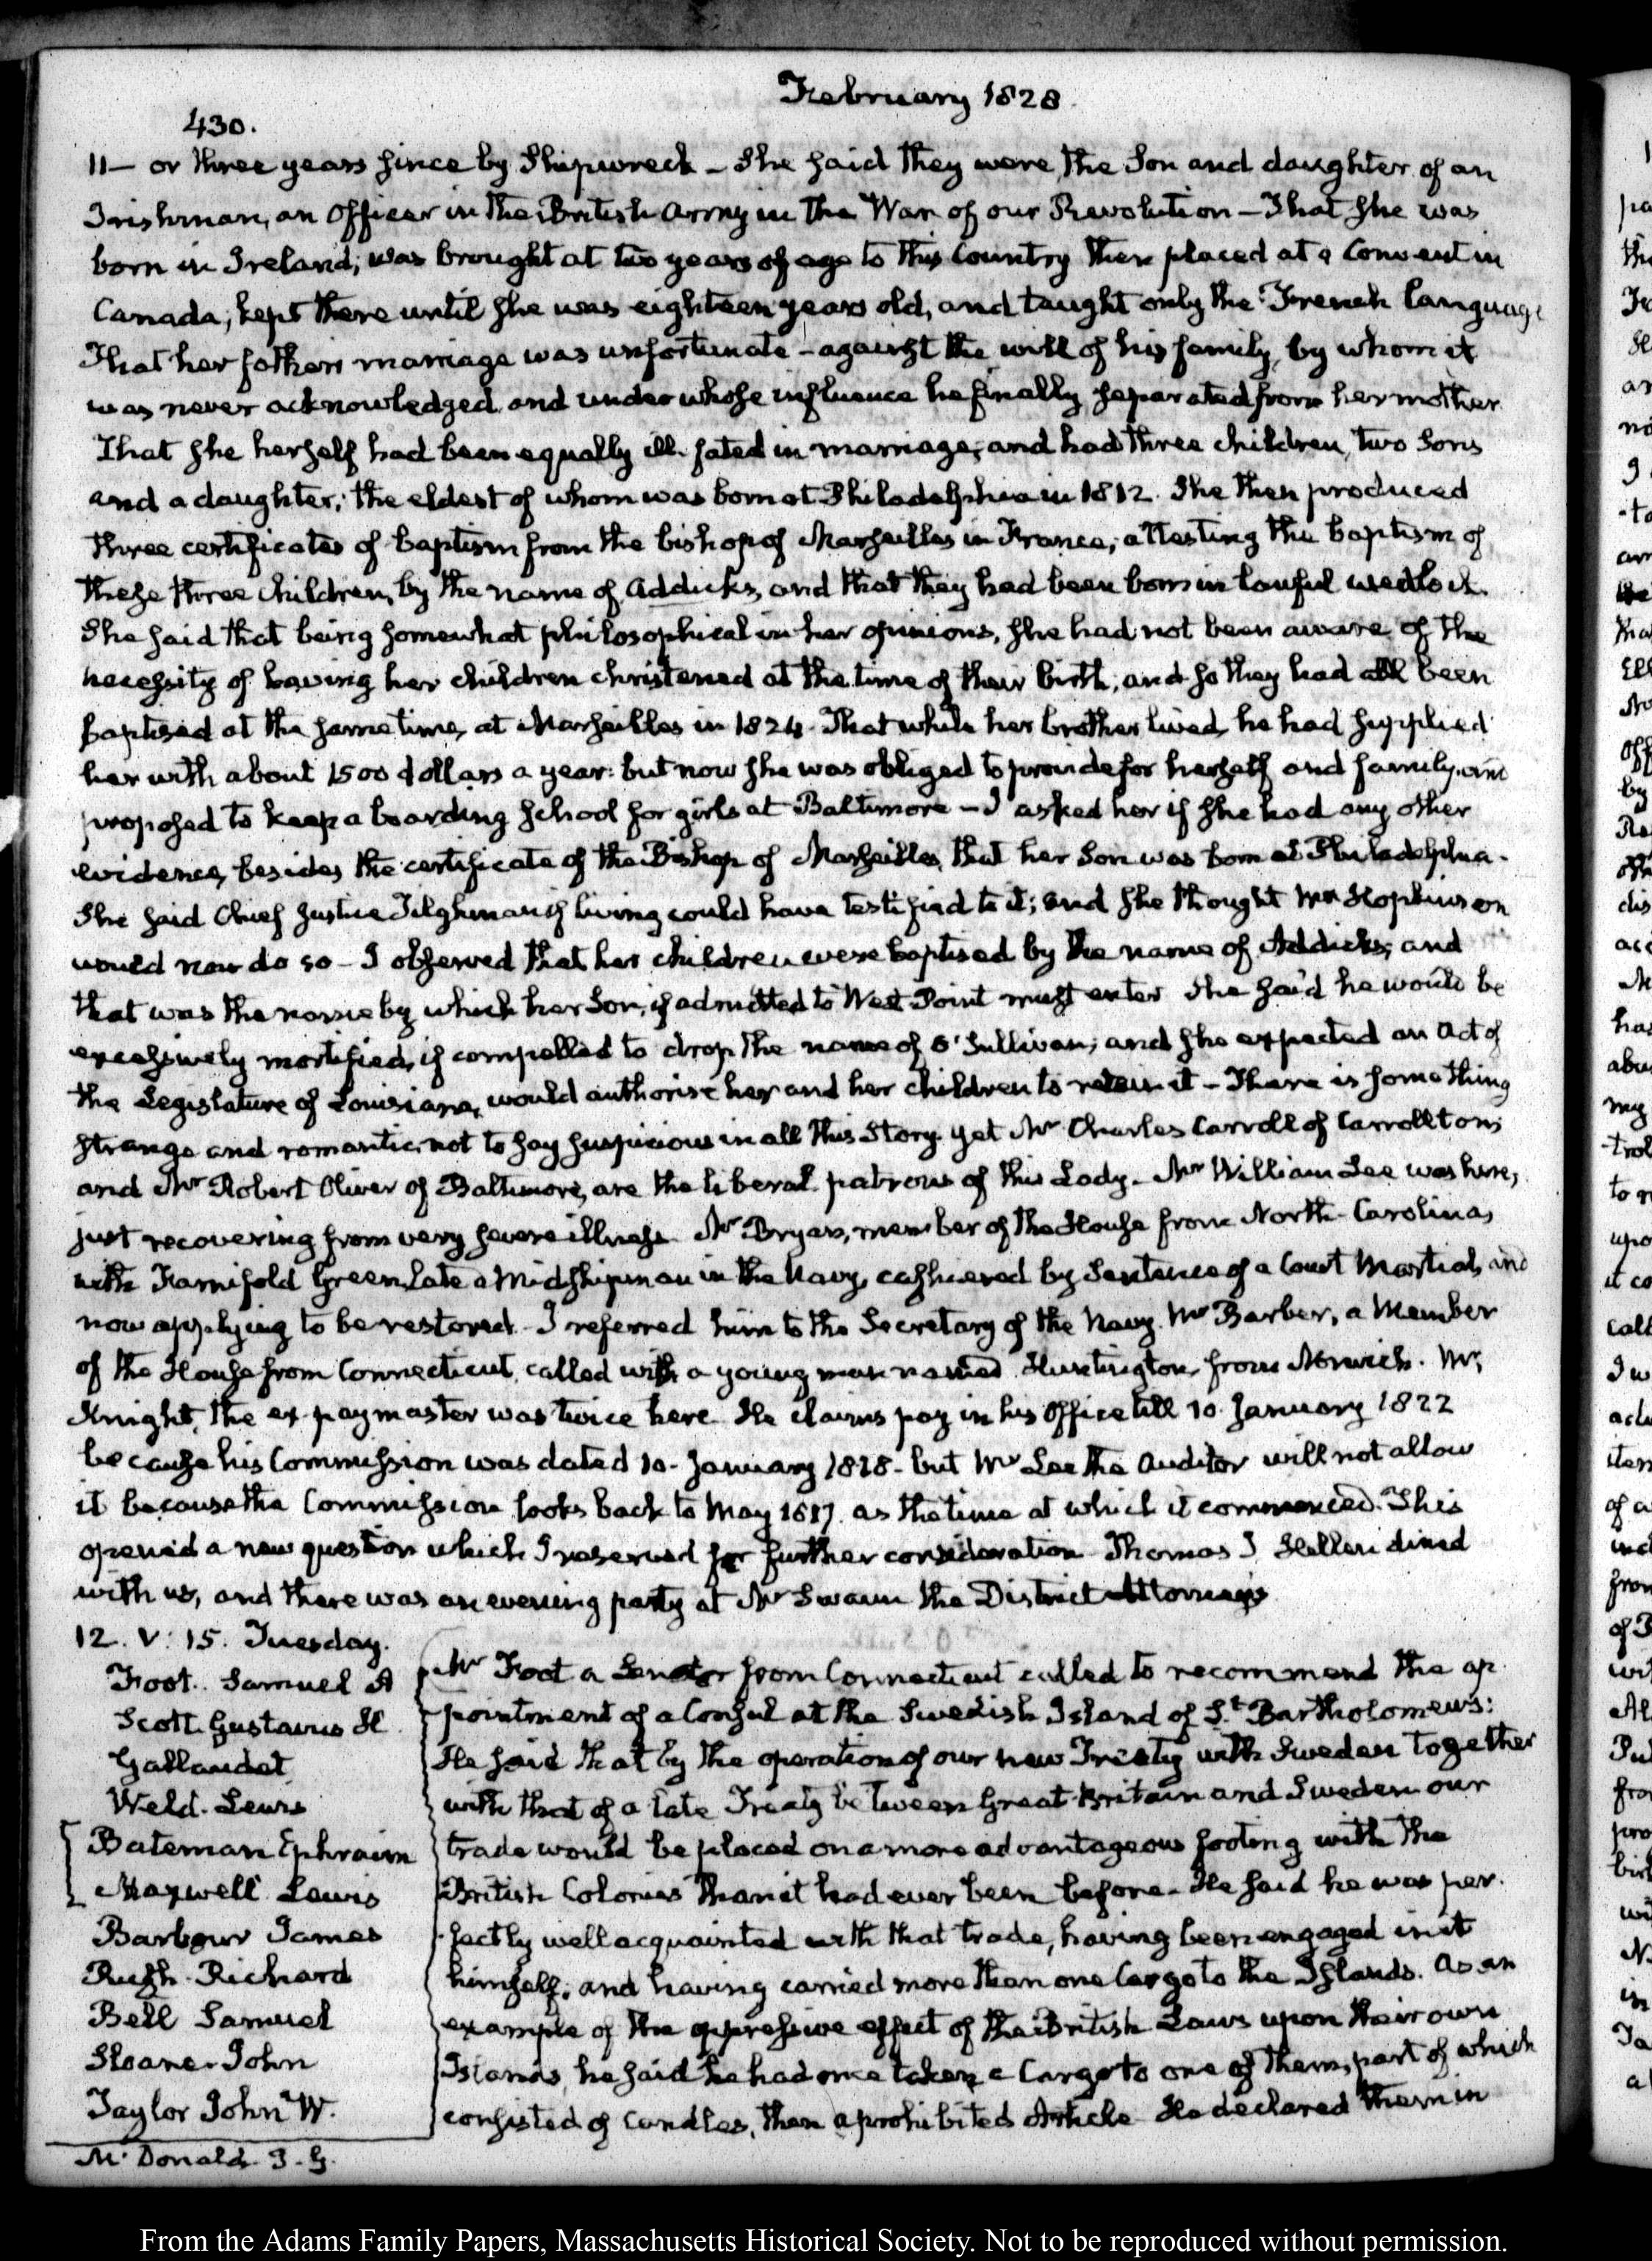 February 1828.
430.
11— or three years since by Shipwreck — She said they were the Son and daughter of an
Irishman, an Officer in the British Army in the War of our Revolution — That she was
born in Ireland; was brought at two years of age to this Country then placed at a Convent in
Canada; kept there until she was eighteen years old, and taught only the French language
That her father's marriage was unfortunate — against the will of his family, by whom it
was never acknowledged, and under whose influence he finally separated from her mother
That she herself had been equally ill-fated in marriage; and had three children, two Sons
and a daughter; the eldest of whom was born at Philadelphia in 1812. She then produced
three certificates of baptism from the bishop of Marseilles in France, attesting the baptism of
these three children, by the name of Addicks, and that they had been born in lawful wedlock.
She said that being somewhat philosophical in her opinions, she had not been aware of the
necessity of having her children christened at the time of their birth; and so they had all been
baptised at the same time, at Marseilles in 1824. That while her brother lived, he had supplied
her with about 1500 dollars a year: but now she was obliged to provide for herself and family, and
proposed to keep a boarding school for girls at Baltimore — I asked her if she had any other
evidence, besides the certificate of the Bishop of Marseilles, that her Son was born at Philadelphia.
She said Chief Justice Tilghman if living could have testified to it; and she thought Mr Hopkinson
would now do so — I observed that her children were baptised by the name of Addicks; and
that was the name by which her Son, if admitted to West Point must enter. She said he would be
excessively mortified, if compelled to drop the name of O'Sullivan; and she expected an Act of
the Legislature of Louisiana, would authorise her and her children to retain it — There is something
strange and romantic, not to say suspicious in all this Story. yet Mr Charles Carroll of Carrollton;
and Mr Robert Oliver of Baltimore, are the liberal patrons of this Lady. Mr William Lee was here,
just recovering from very severe illness. Mr Bryan, member of the House from North-Carolina,
with Farnifold Green, late a Midshipman in the Navy, cashiered by Sentence of a Court Martial, and
now applying to be restored. I referred him to the Secretary of the Navy. Mr Barber, a Member
of the House from Connecticut, called with a young man named Huntington, from Norwich. Mr
Knight, the ex-paymaster was twice here. He claims pay in his Office till 10. January 1822
because his Commission was dated 10. January 1818 - but Mr Lee the Auditor will not allow
it because the Commission looks back to May 1817. as the time at which it commenced. This
opened a new question which I reserved for further consideration. Thomas J. Hellen dined
with us, and there was an evening party at Mr Swann the District Attorney's
12. V: 15. Tuesday.
Foot. Samuel A
Scott Gustavus H.
Gallaudet
Weld. Lewis
Bateman Ephraim
Maxwell Lewis
Barbour James
Rush. Richard
Bell Samuel
Sloane. John
Taylor John W.
McDonald. J. G.
Mr Foot a Senator from Connecticut called to recommend the ap-
pointment of a Consul at the Swedish Island of St Bartholomews:
He said that by the operation of our new Treaty with Sweden together
with that of a late Treaty between Great-Britain and Sweden our
trade would be placed on a more advantageous footing with the
British Colonies than it had ever been before. He said he was per-
fectly well acquainted with that trade, having been engaged in it
himself; and having carried more than one Cargo to the Islands. As an
example of the oppressive effect of the British Laws upon their own
Islands, he said he had once taken a Cargo to one of them, part of which
consisted of Candles, then a prohibited Article. He declared them in
From the Adams Family Papers, Massachusetts Historical Society. Not to be reproduced without permission.